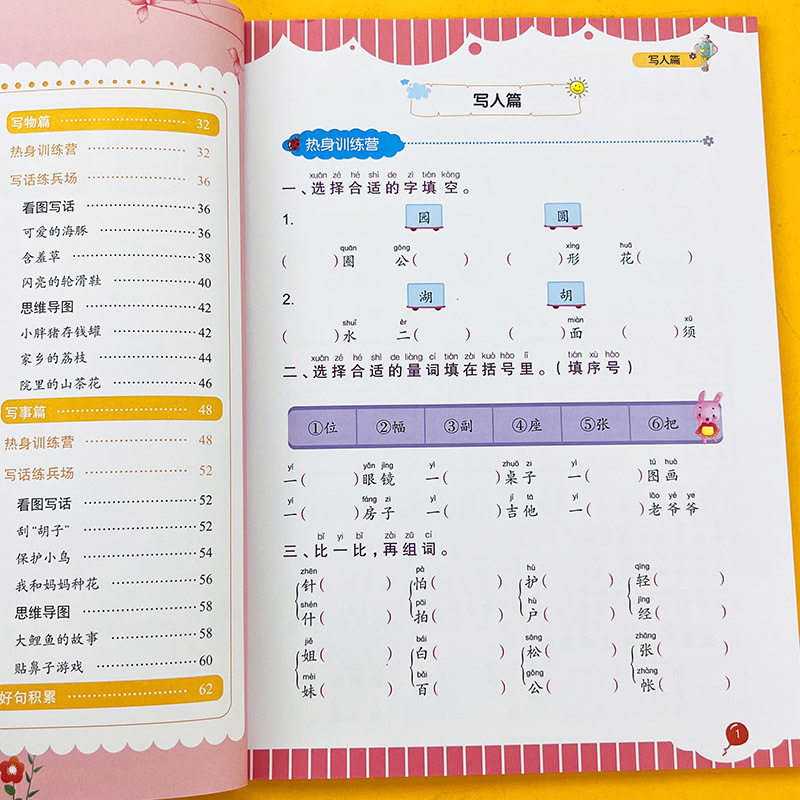 写物篇 32
热身训练营 32
写话练兵场 36
看图写话 36
可爱的海豚 36
含羞草 38
闪亮的轮滑鞋 40
思维导图 42
小胖猪存钱罐 42
家乡的荔枝 44
院里的山茶花 46
写事篇 48
热身训练营 48
写话练兵场 52
看图写话 52
刮“胡子” 52
保护小鸟 54
我和妈妈种花 56
思维导图 58
大鲤鱼的故事 58
贴鼻子游戏 60
好句积累 62
写人篇
写人篇
热身训练营
xuǎn zé hé shì de zì tián kòng
一、选择合适的字填空。
1. 园 圆
quān gōng xíng huā
( )圈 公( ) ( )形 花( )
2. 湖 胡
shuǐ èr miàn xū
( )水 二( ) ( )面 ( )须
xuǎn zé hé shì de liàng cí tián zài kuò hào lǐ tián xù hào
二、选择合适的量词填在括号里。(填序号)
①位 ②幅 ③副 ④座 ⑤张 ⑥把
yí yǎn jìng yì zhuō zi yì tú huà
一( )眼镜 一( )桌子 一( )图画
yí fáng zi yì jí tā yí lǎo yé ye
一( )房子 一( )吉他 一( )老爷爷
bǐ yi bǐ zài zǔ cí
三、比一比,再组词。
zhēn pà hù qīng
针( ) 怕( ) 护( ) 轻( )
shén pāi hù jīng
什( ) 拍( ) 户( ) 经( )
jiě bái sōng zhāng
姐( ) 白( ) 松( ) 张( )
mèi bǎi gōng zhàng
妹( ) 百( ) 公( ) 帐( )
1